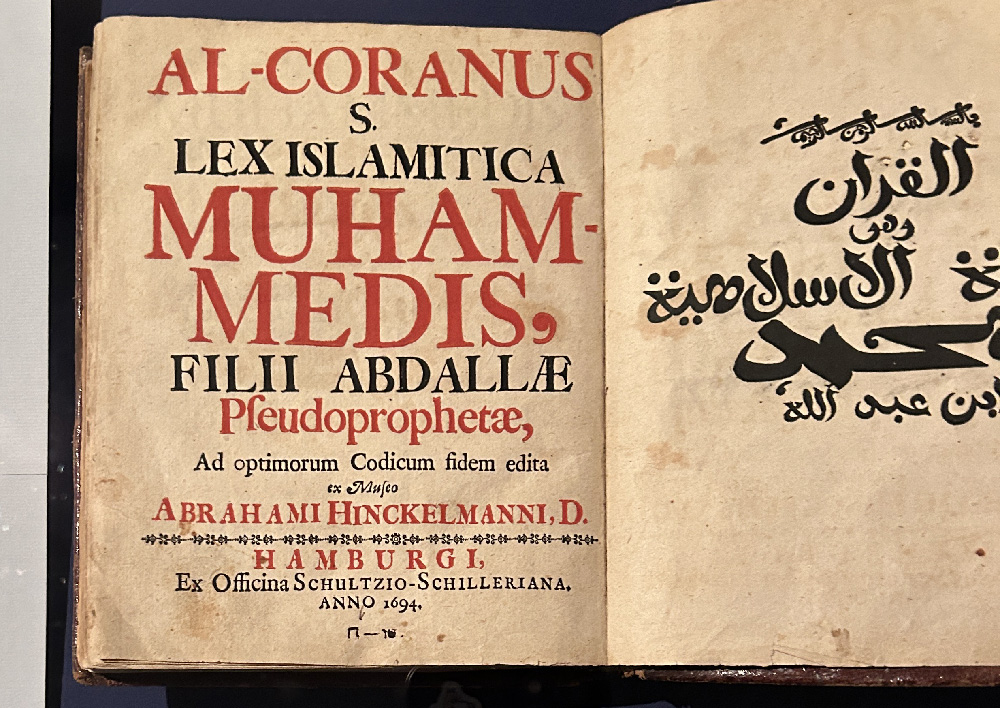 AL-CORANUS
S.
LEX ISLAMITICA
MUHAM-
MEDIS,
FILII ABDALLÆ
Pſeudoprophetæ,
Ad optimorum Codicum fidem edita
ex Muſeo
ABRAHAMI HINCKELMANNI, D.
HAMBURGI,
Ex Officina SCHULTZIO-SCHILLERIANA.
ANNO 1694.
القران
وهى
الاسلامية
محمد
ابن عبد الله